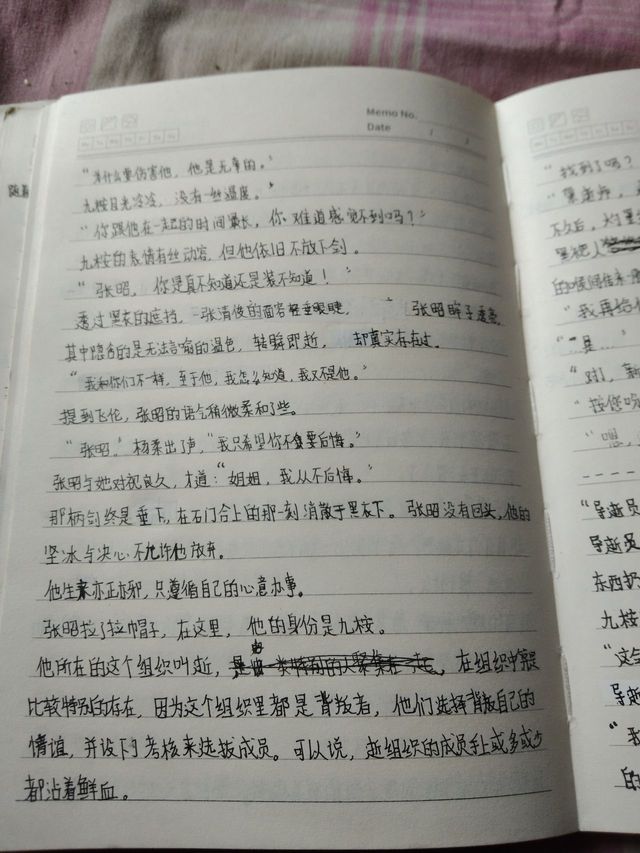 Memo No.
Date / /
"为什么要伤害他，他是无辜的。"
九桉目光冷冷，没有一丝温度。
"你跟他在一起的时间最长，你难道感觉不到吗？"
九桉的表情有丝动容，但他依旧不放下剑。
"张昭，你是真不知道还是装不知道！"
透过黑衣的遮挡，一张清俊的面容轻垂眼睫，张昭眸子
其中隐含的是无法言喻的温色，转瞬即逝，却真实存在过。
"我和你们不一样，至于他，我怎么知道，我又不是他。"
提到飞伦，张昭的语气稍微柔和了些。
"张昭。"杨柔出声，"我只希望你不要后悔。"
张昭与她对视良久，才道："姐姐，我从不后悔。"
那柄剑终是垂下，在石门合上的那一刻消散于黑衣下。张昭没有回头，他的
坚冰与决心不允许他放弃。
他生来亦正亦邪，只遵循自己的心意办事。
张昭拉了拉帽子，在这里，他的身份是九桉。
他所在的这个组织叫逝，在组织中算是
比较特别的存在，因为这个组织里都是背叛者，他们选择背叛自己的
情谊，并设下了考核来选拔成员。可以说，逝组织的成员手上或多或少
都沾着鲜血。
"找到了吗？
不久后，
黑袍人
的时候
"我再给
"…是…"
"对了，新
"按您吩
"嗯，
-----
"导逝员
导逝员
东西扔
九桉
"这
导逝
"我
的